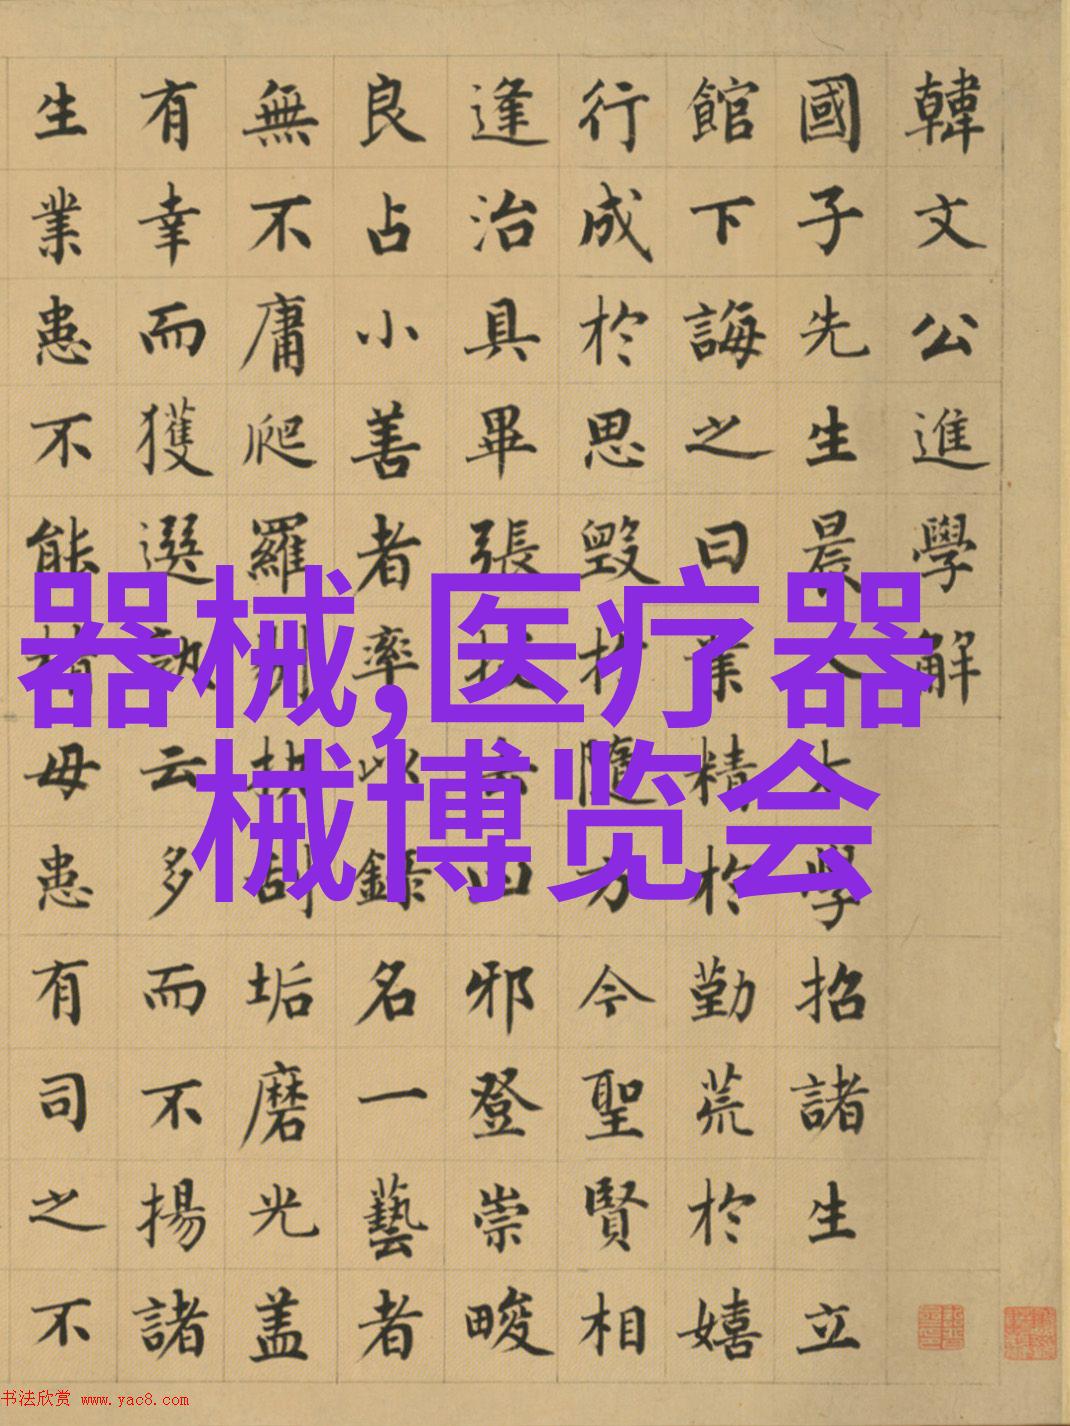 韓文公進學解
國子先生晨入太學招諸生立
館下誨之曰業精於勤荒於嬉
行成於思毀於隨方今聖賢相
逢治具畢張拔去凶邪登崇畯
良占小善者率以錄名一藝者
無不庸爬羅剔抉刮垢磨光盖
有幸而獲選孰云多而不揚諸
生業患不能精毋患有司之不
器械,医疗器
械博览会
书法欣赏 www.yac8.com